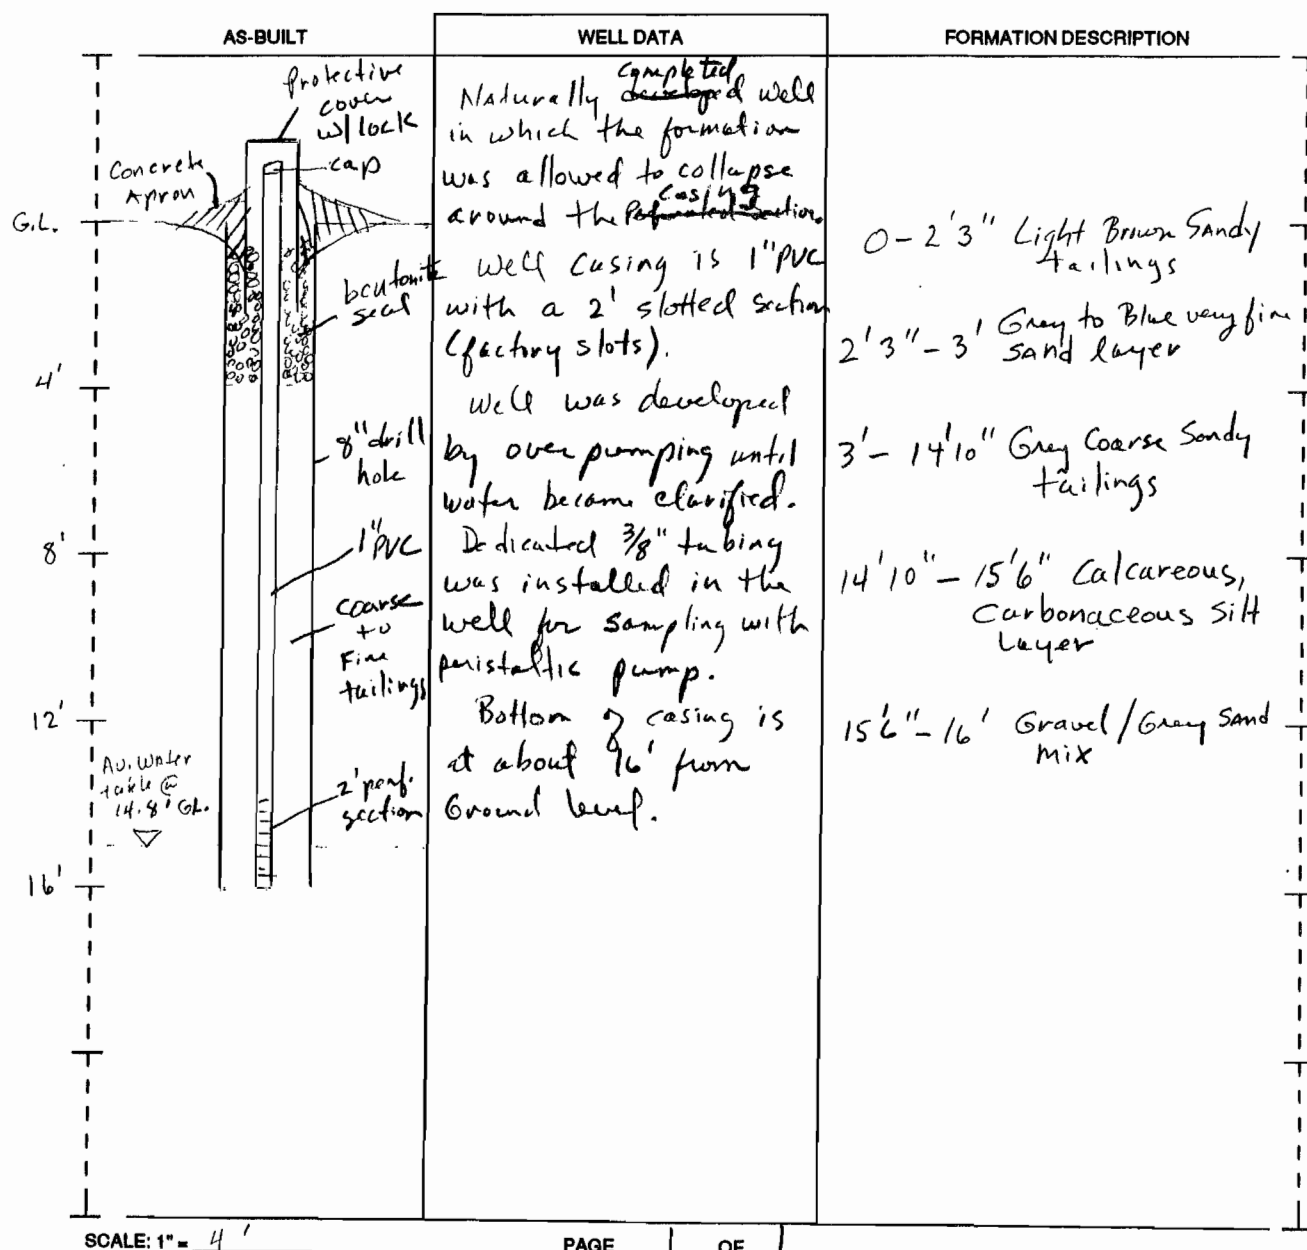 AS-BUILT
WELL DATA
FORMATION DESCRIPTION
Protective
cover
w/ lock
cap
Concrete
Apron
G.L.
bentonite
seal
4'
8" drill
hole
8'
1" PVC
coarse
to
Fine
tailings
12'
Av. Water
table @
14.8' GL.
2' perf.
section
16'
completed
Naturally developed well
in which the formation
was allowed to collapse
casing
around the Perforated section.
Well casing is 1" PVC
with a 2' slotted section
(factory slots).
Well was developed
by over pumping until
water became clarified.
Dedicated 3/8" tubing
was installed in the
well for sampling with
peristaltic pump.
Bottom of casing is
at about 16' from
Ground level.
0 - 2'3" Light Brown Sandy
tailings
2'3" - 3' Grey to Blue very fine
sand layer
3' - 14'10" Grey Coarse Sandy
tailings
14'10" - 15'6" Calcareous,
Carbonaceous Silt
Layer
15'6" - 16' Gravel/Grey Sand
mix
SCALE: 1" = 4'
PAGE OF